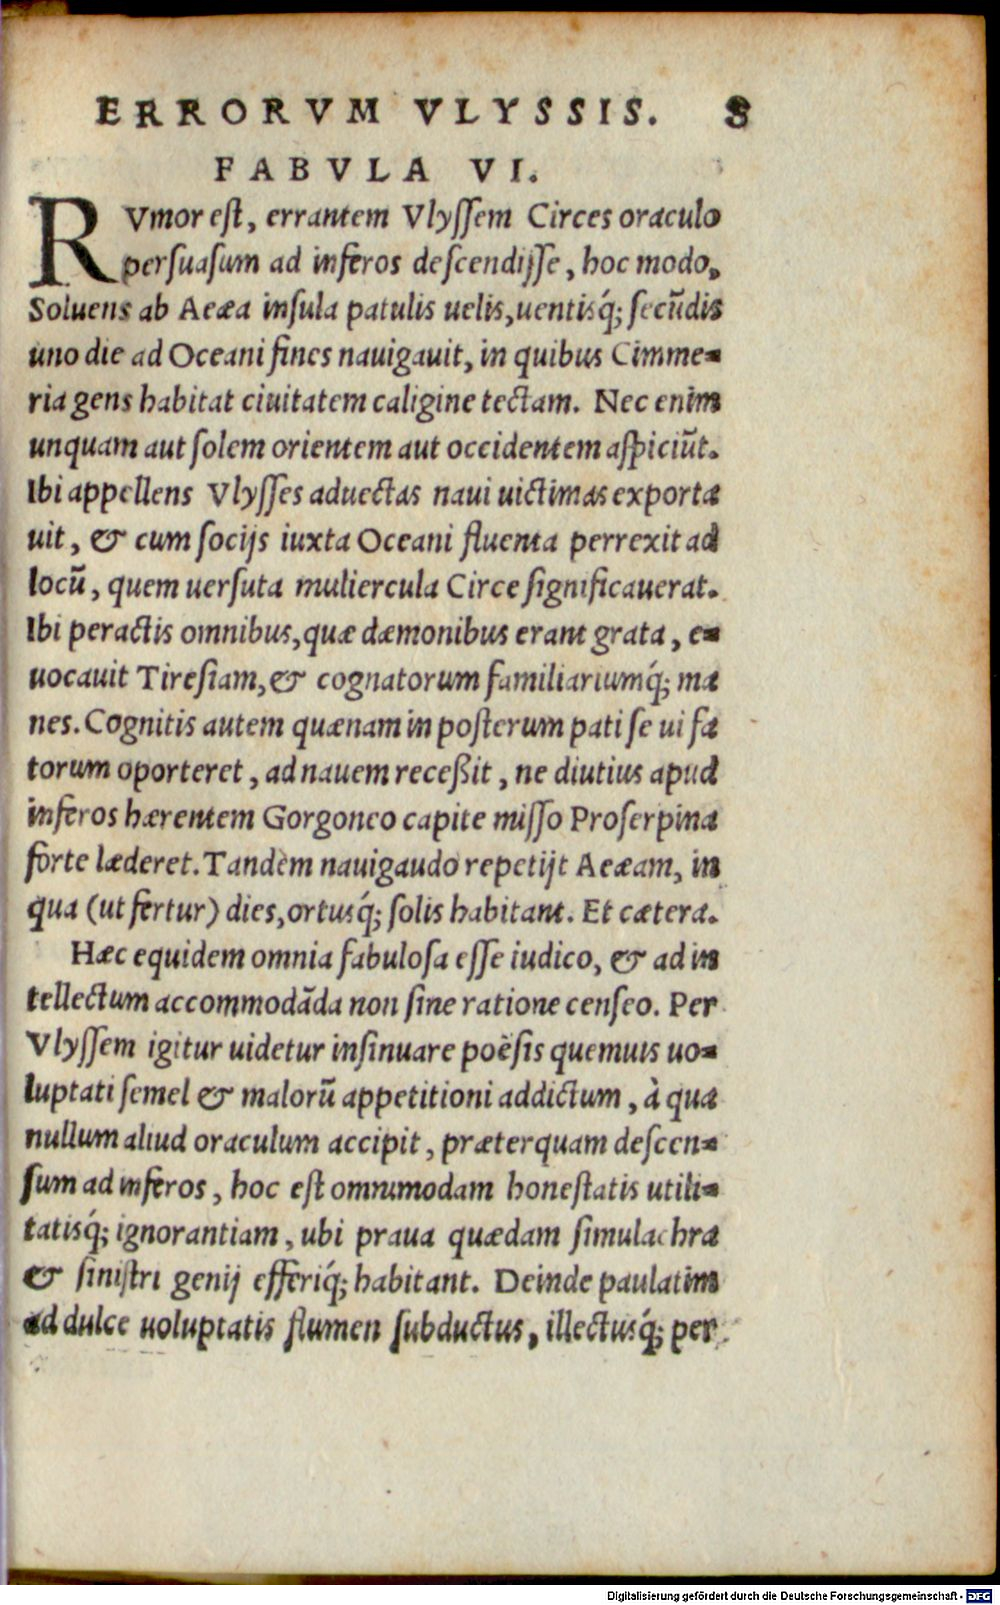 ERRORVM VLYSSIS. 8
FABVLA VI.
RVmor est, errantem Vlyssem Circes oraculo
persuasum ad inferos descendisse, hoc modo.
Soluens ab Aeæa insula patulis uelis, uentisq́; secūdis
uno die ad Oceani fines nauigauit, in quibus Cimme-
ria gens habitat ciuitatem caligine tectam. Nec enim
unquam aut solem orientem aut occidentem aspiciūt.
Ibi appellens Vlysses aduectas naui uictimas exporta
uit, & cum socijs iuxta Oceani fluenta perrexit ad
locū, quem uersuta muliercula Circe significauerat.
Ibi peractis omnibus, quæ dæmonibus erant grata, e-
uocauit Tiresiam, & cognatorum familiariumq́; ma
nes. Cognitis autem quænam in posterum pati se ui fa
torum oporteret, ad nauem receßit, ne diutius apud
inferos hærentem Gorgoneo capite misso Proserpina
forte læderet. Tandem nauigaudo repetijt Aeæam, in
qua (ut fertur) dies, ortusq́; solis habitant. Et cætera.
Hæc equidem omnia fabulosa esse iudico, & ad in
tellectum accommodāda non sine ratione censeo. Per
Vlyssem igitur uidetur insinuare poësis quemuis uo-
luptati semel & malorū appetitioni addictum, à qua
nullum aliud oraculum accipit, præterquam descen-
sum ad inferos, hoc est omnimodam honestatis utili-
tatisq́; ignorantiam, ubi praua quædam simulachra
& sinistri genij efferiq́; habitant. Deinde paulatim
ad dulce uoluptatis flumen subductus, illectusq́; per
Digitalisierung gefördert durch die Deutsche Forschungsgemeinschaft - DFG